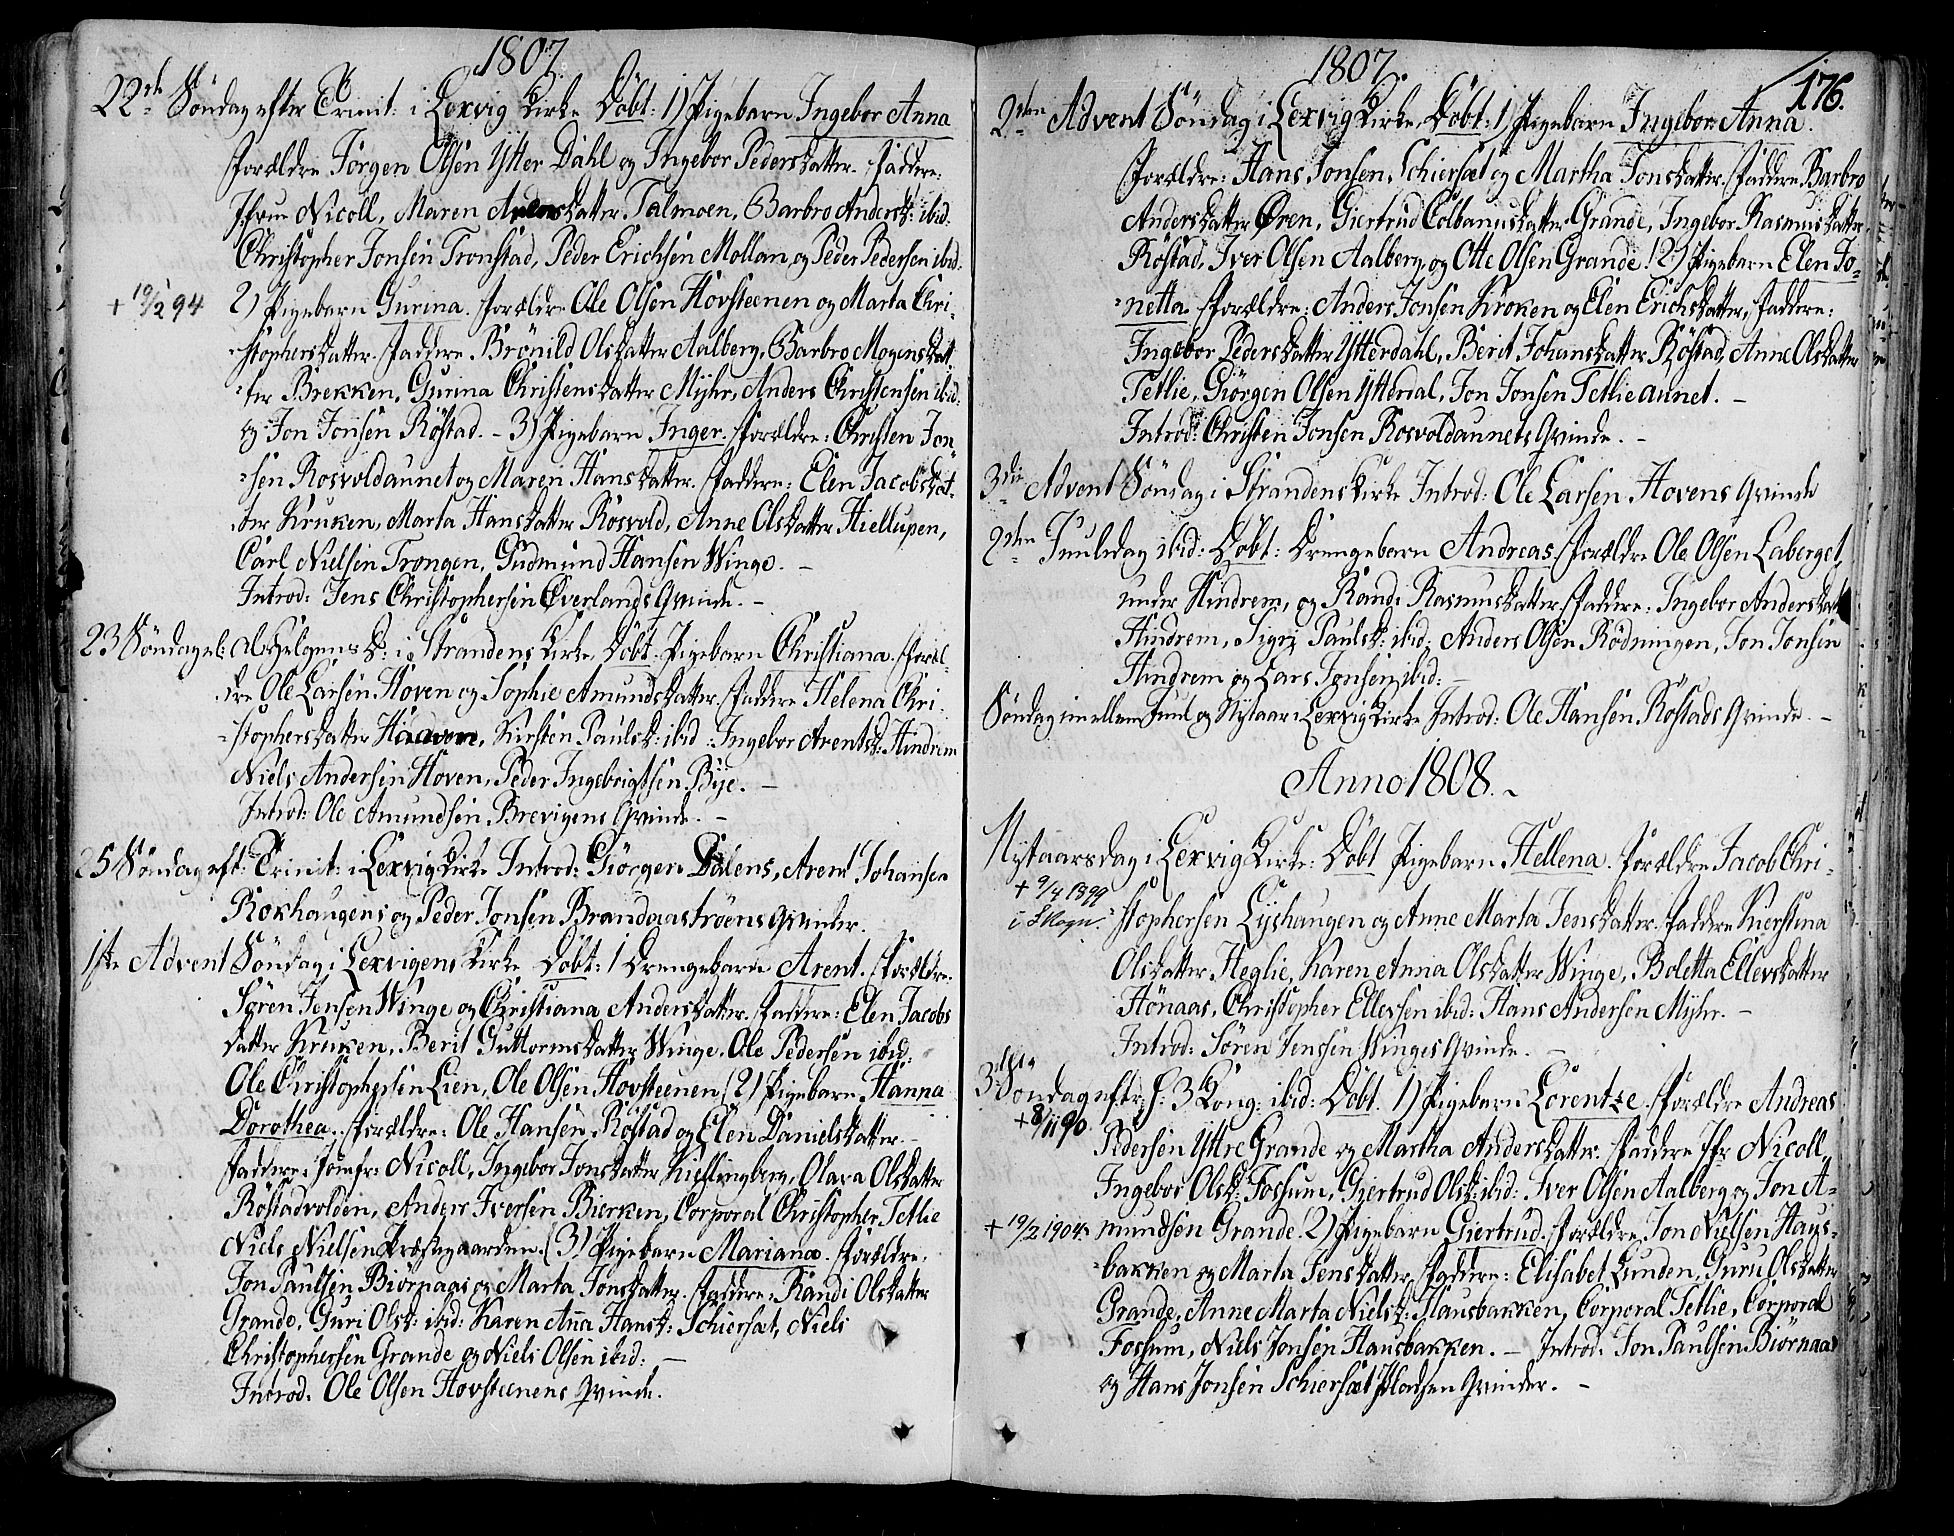 1807
22de Söndag efter Trinit: i Lexvig Kirke Döbt: 1) Pigebarn Ingebor Anna
Forældre Jörgen Olsen Ytter Dahl og Ingebor Pedersdatter. Faddere:
Jfrue Nicoll, Maren Arensdatter Talmoen, Barbro Andersd: ibid:
Christopher Jonsen Tronstad, Peder Erichsen Mollan, og Peder Pedersen ibid.
+ 19/2 94
2) Pigebarn Gurina. Forældre Ole Olsen Hovsteenen og Marta Chri-
stophersdatter. Faddere Brönild Olsdatter Aalberg, Barbro Mogensdat-
ter Brekken, Gurina Christensdatter Myhr, Anders Christensen ibid:
og Jon Jonsen Röstad. - 3) Pigebarn Inger. Forældre: Christen Jon-
sen Rosvoldaunet og Maren Hansdatter. Faddere: Elen Jacobsdat-
ter Kruken, Marta Hansdatter Rosvold, Anne Olsdatter Hiellupen,
Carl Nielsen Trongen, Gudmund Hansen Winge. -
Introd: Jens Christophersen Överlands Qvinde. -
23 Söndag el: Alhelgens D: i Strandens Kirke Döbt: Pigebarn Christiana. Foræl-
dre Ole Larsen Hoven og Sophie Amundsdatter. Faddere Helena Chri-
stophersdatter Haaven, Kirsten Paulsd: ibid: Ingebor Arentsd: Hindrem
Niels Andersen Hoven, Peder Ingebrigtsen Bye. -
Introd: Ole Amundsen Brevigens Qvinde. -
25 Söndag eft: Trinit: i Lexvig Kirke Introd: Giörgen Dalens, Arent Johansen
Roxhaugens og Peder Jonsen Brandaaströens Qvinder.
1ste Advent Söndag i Lexvigens Kirke Döbt: 1 Drengebarn Arent. Forældre:
Sören Jensen Winge og Christiana Andersdatter. Faddere: Elen Jacobs
datter Kruken, Berit Guttormsdatter Winge, Ole Pedersen ibid:
Ole Christophersen Lien, Ole Olsen Hovsteenen (2) Pigebarn Hanna
Dorothea. Forældre: Ole Hansen Röstad og Elen Danielsdatter. -
Faddere: Jomfr: Nicoll, Ingebor Jonsdatter Kiellingberg, Olava Olsdatter
Röstadvolden, Anders Iversen Bierken, Corporal Christopher Tetlie
Niels Nielsen Præstegaarden. (3) Pigebarn Mariana. Forældre.
Jon Paulsen Biörnaas og Marta Jonsdatter. Faddere: Randi Olsdatter
Grande, Guri Olsd: ibid: Karen Anna Hansd: Schiersæt, Niels
Christophersen Grande og Niels Olsen ibid: -
Introd: Ole Olsen Hovsteenens Qvinde.
1807
176.
2den Advent Söndag i Lexvig Kirke. Döbt: 1, Pigebarn Ingebor Anna.
Forældre: Hans Jonsen Schiersæt og Martha Jonsdatter. Faddere Barbro
Andersdatter Ören, Giertrud Colbanusdatter Grande, Ingebor Rasmusdatter
Röstad, Iver Olsen Aalberg, og Otte Olsen Grande! (2) Pigebarn Elen Jo-
netta. Forældre: Anders Jonsen Kroken og Elen Erichsdatter, Faddere:
Ingebor Pedersdatter Ytterdahl, Berit Johansdatter Röstad, Anne Olsdatter
Tetlie, Giörgen Olsen Ytterdal, Jon Jonsen Tetlieaunet. -
Introd: Christen Jonsen Rosvoldaunets Qvinde. -
3die Advent Söndag i Strandens Kirke Introd: Ole Larsen Hovens Qvinde
2den Juuledag ibid: Döbt: Drengebarn Andreas. Forældre Ole Olsen Laberget,
under Hindrem, og Randi Rasmusdatter. Faddere: Ingebor Andersdatt
Hindrem, Sigri Paulsd: ibid: Anders Olsen Rödningen, Jon Jonsen
Hindrem og Lars Jonsen ibid: -
Söndag imellem Juul og Nytaar i Lexvig Kirke Introd: Ole Hansen Röstads Qvinde. -
Anno 1808. ~
Nytaarsdag i Lexvig Kirke: Döbt Pigebarn Hellena. Forældre Jacob Chri-
+ 9/4 1899
i Skogn.
stophersen Lyshaugen og Anne Marta Jensdatter. Faddere Kierstina
Olsdatter Heglie, Karen Anna Olsdatter Winge, Boletta Ellevsdatter
Hönaas, Christopher Ellevsen ibid: Hans Andersen Myhr. -
Introd: Sören Jenssen Winges Qvinde. -
3die Söndag eftr: h: 3 Kong: ibid: Döbt. 1) Pigebarn Lorentze. Forældre Andreas
+ 8/11 90.
Pedersen Yttre Grande og Martha Andersdatter. Faddere Jfr Nicoll,
Ingebor Olsd: Fossum, Giertrud Olsd: ibid: Iver Olsen Aalberg og Jon A-
+ 19/2 1904.
mundsen Grande. 2) Pigebarn Giertrud. Forældre, Jon Nielsen Haus-
bakken og Marta Jensdatter, Faddere: Elisabet Lunden, Guru Olsdatter
Grande, Anne Marta Nielsd: Hausbakken, Corporal Tetlie, Corporal
Fossum, Niels Jonsen Hausbakken. - Introd: Jon Paulsen Biörnaas
og Hans Jonsen Schiersæt Pladsen Qvinder. -